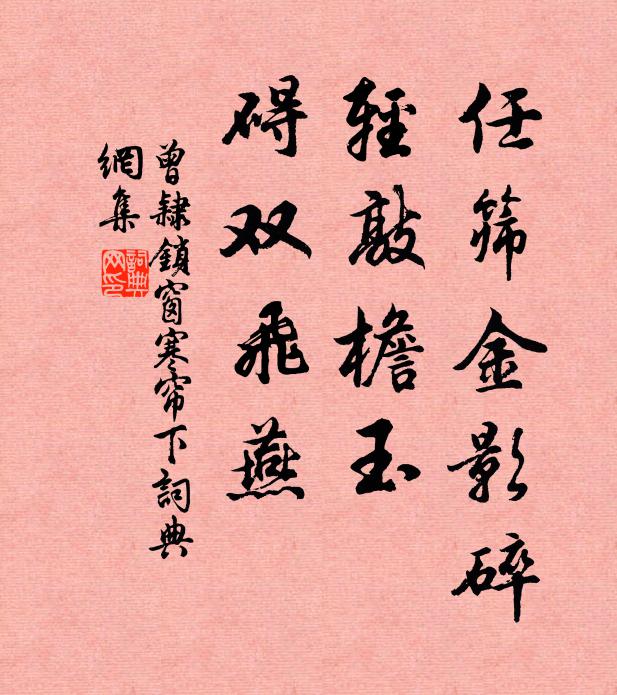 任筛金影碎
輕敲檐玉
碍双飛燕
曾隸鎖窗寒帘下詞典
網集
詞典
网印